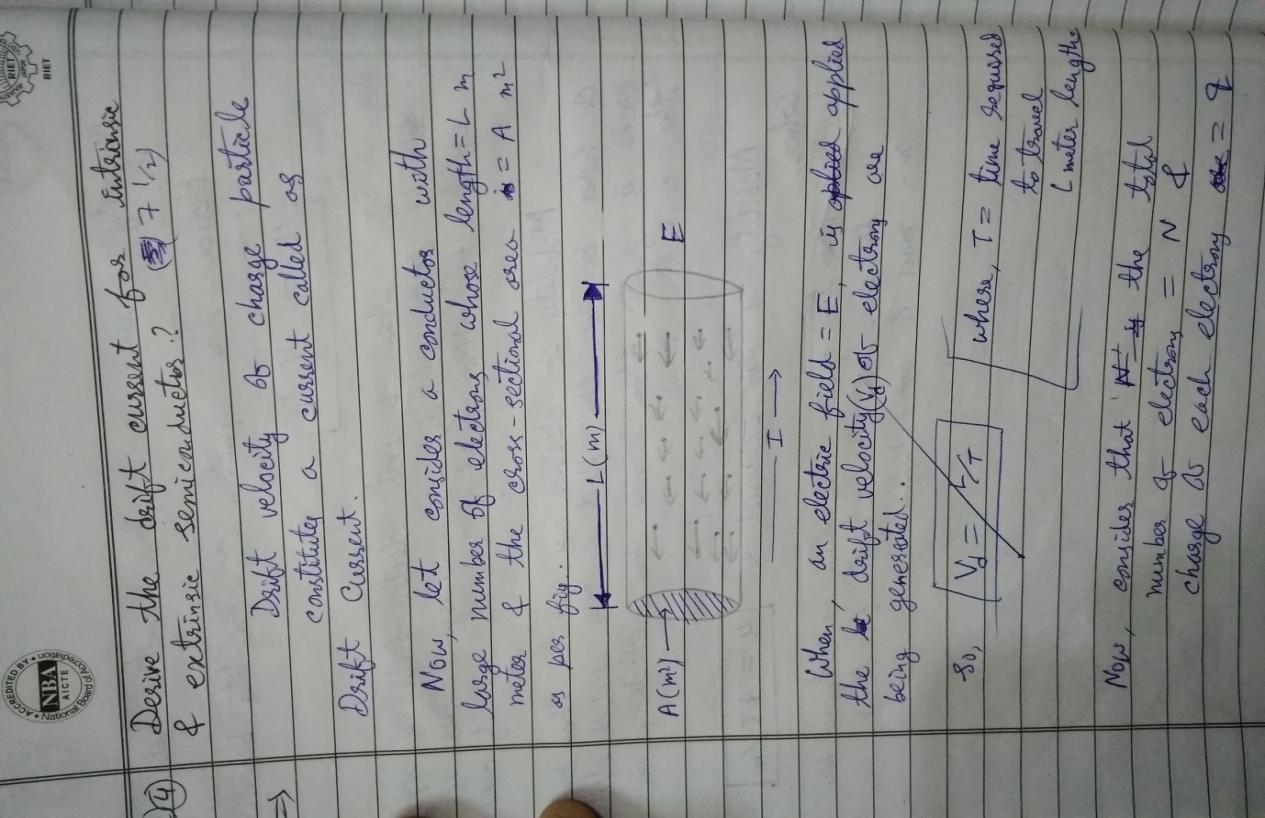 ACCREDITED BY
NBA
AICTE
National Board of Accreditation
RIET
RIET
(4) Derive the drift current for intrinsic
& extrinsic semiconductor? 7 1/2)
=> Drift velocity of charge particle
constitutes a current called as
Drift Current.
Now, let consider a conductor with
large number of electrons whose length = L m
meter & the cross-sectional area = A m²
as per fig.
L(m)
A(m) E
I →
When, an electric field = E, is applied applied
the drift velocity (Vd) of electrons are
being generated..
So, Vd = L/T where, T = time required
to travel
L meter length.
Now, consider that N is the total
number of electrons = N &
charge of each electrons = q